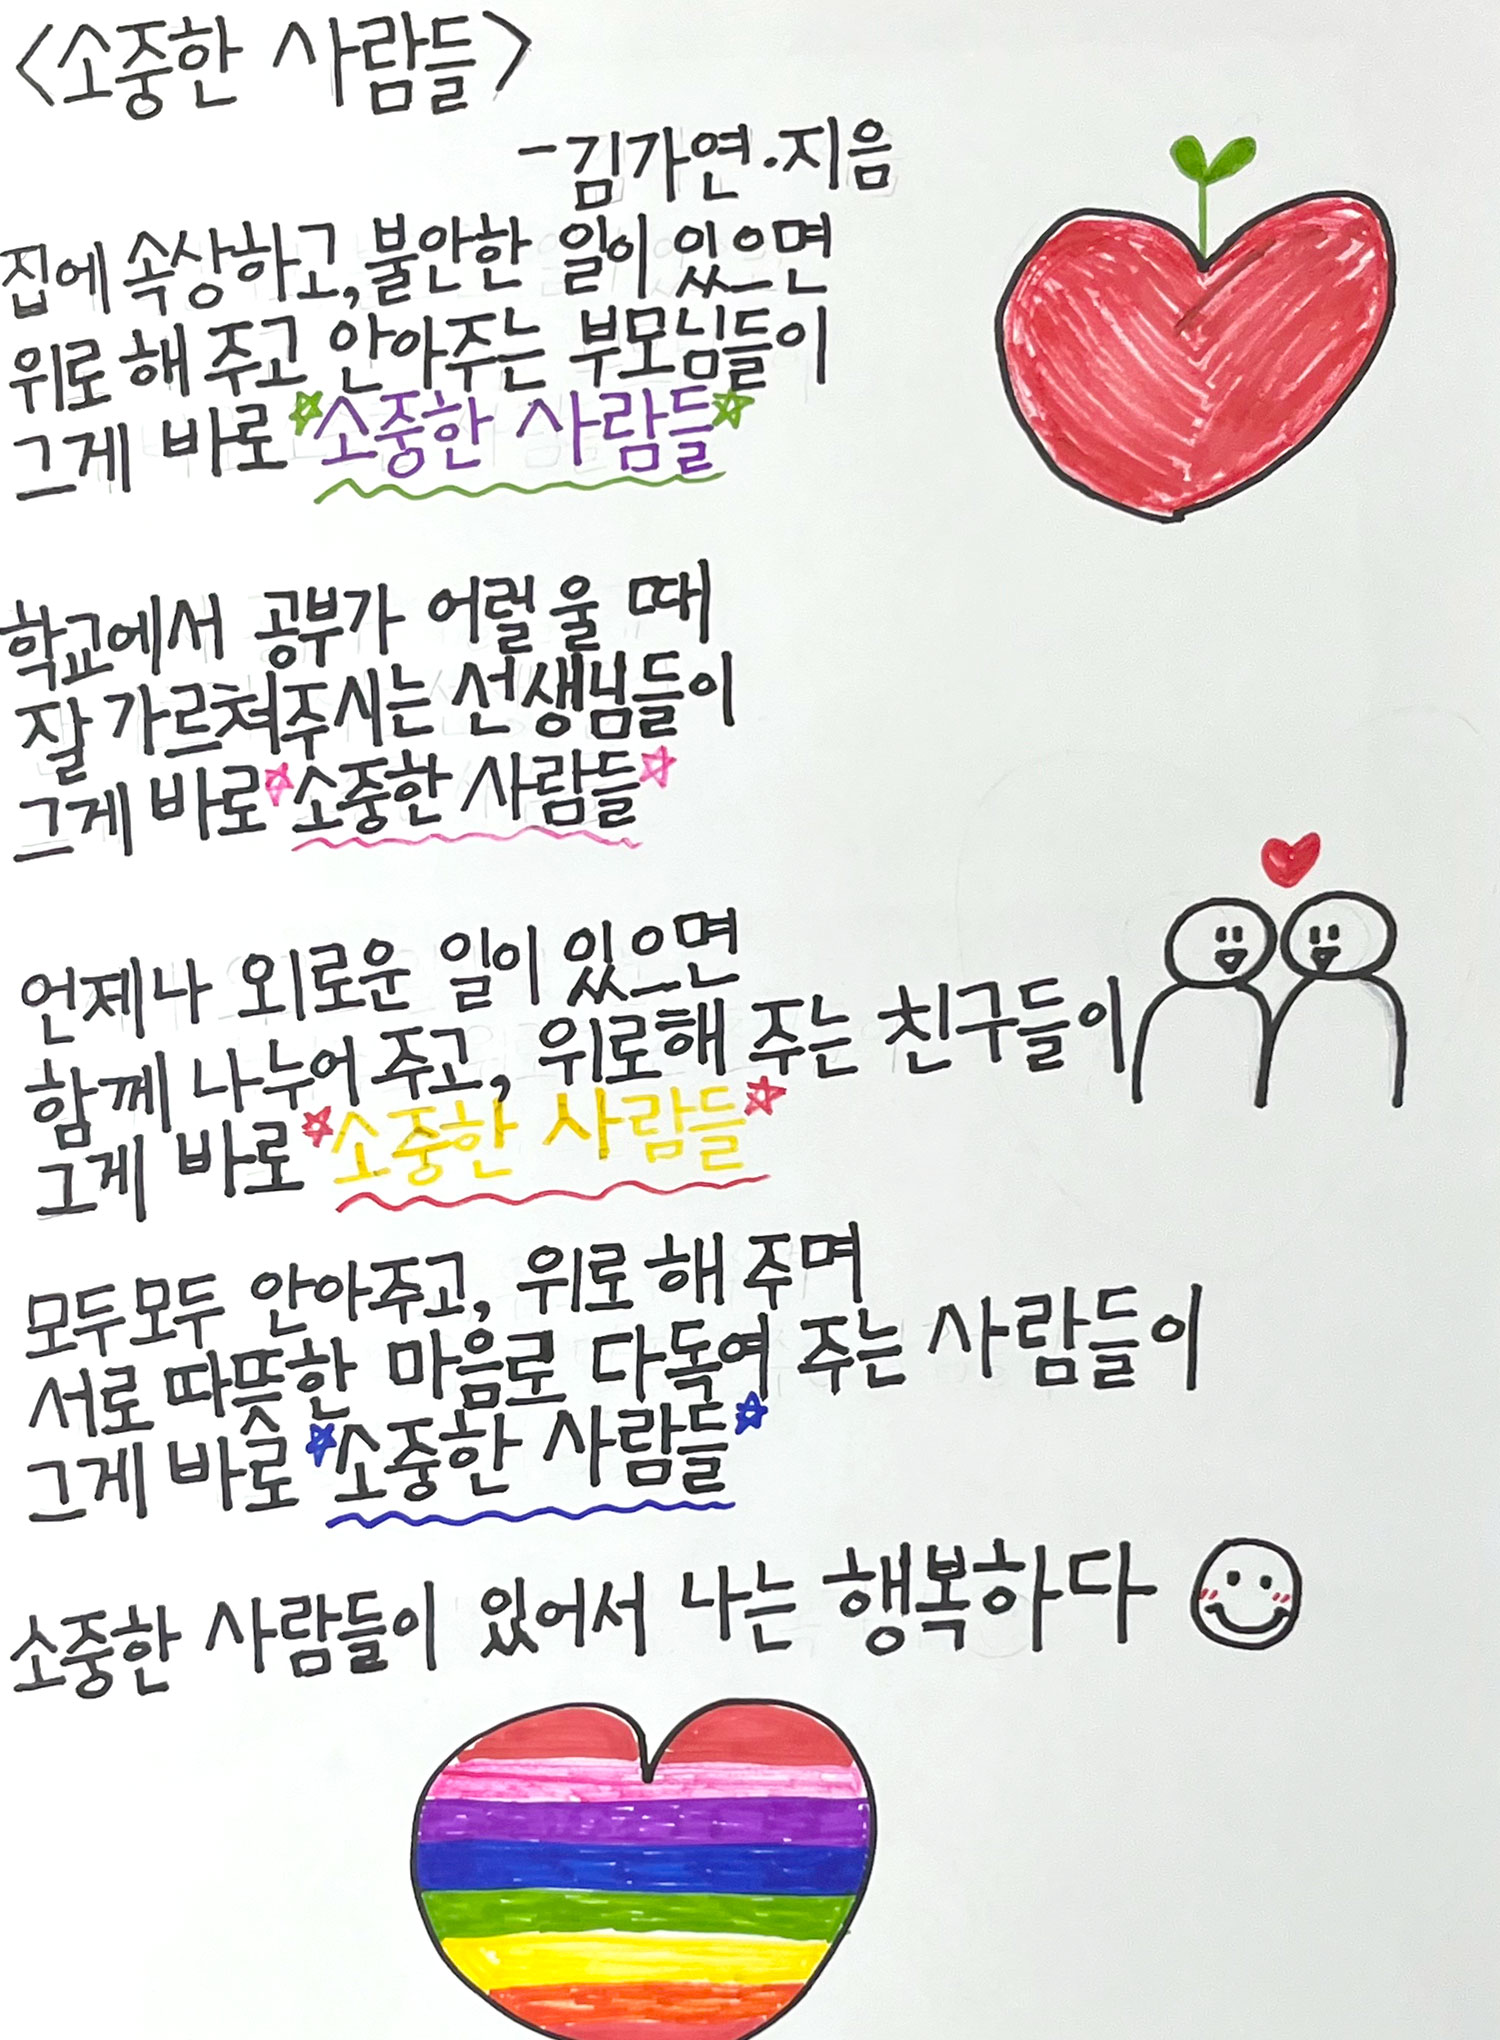 <소중한 사람들>
-김가연.지음
집에 속상하고, 불안한 일이 있으면
위로 해 주고 안아주는 부모님들이
그게 바로 소중한 사람들
학교에서 공부가 어렬울 때
잘 가르쳐주시는 선생님들이
그게 바로 소중한 사람들
언제나 외로운 일이 있으면
함께 나누어 주고, 위로해 주는 친구들이
그게 바로 소중한 사람들
모두모두 안아주고, 위로 해 주며
서로 따뜻한 마음로 다독여 주는 사람들이
그게 바로 소중한 사람들
소중한 사람들이 있어서 나는 행복하다